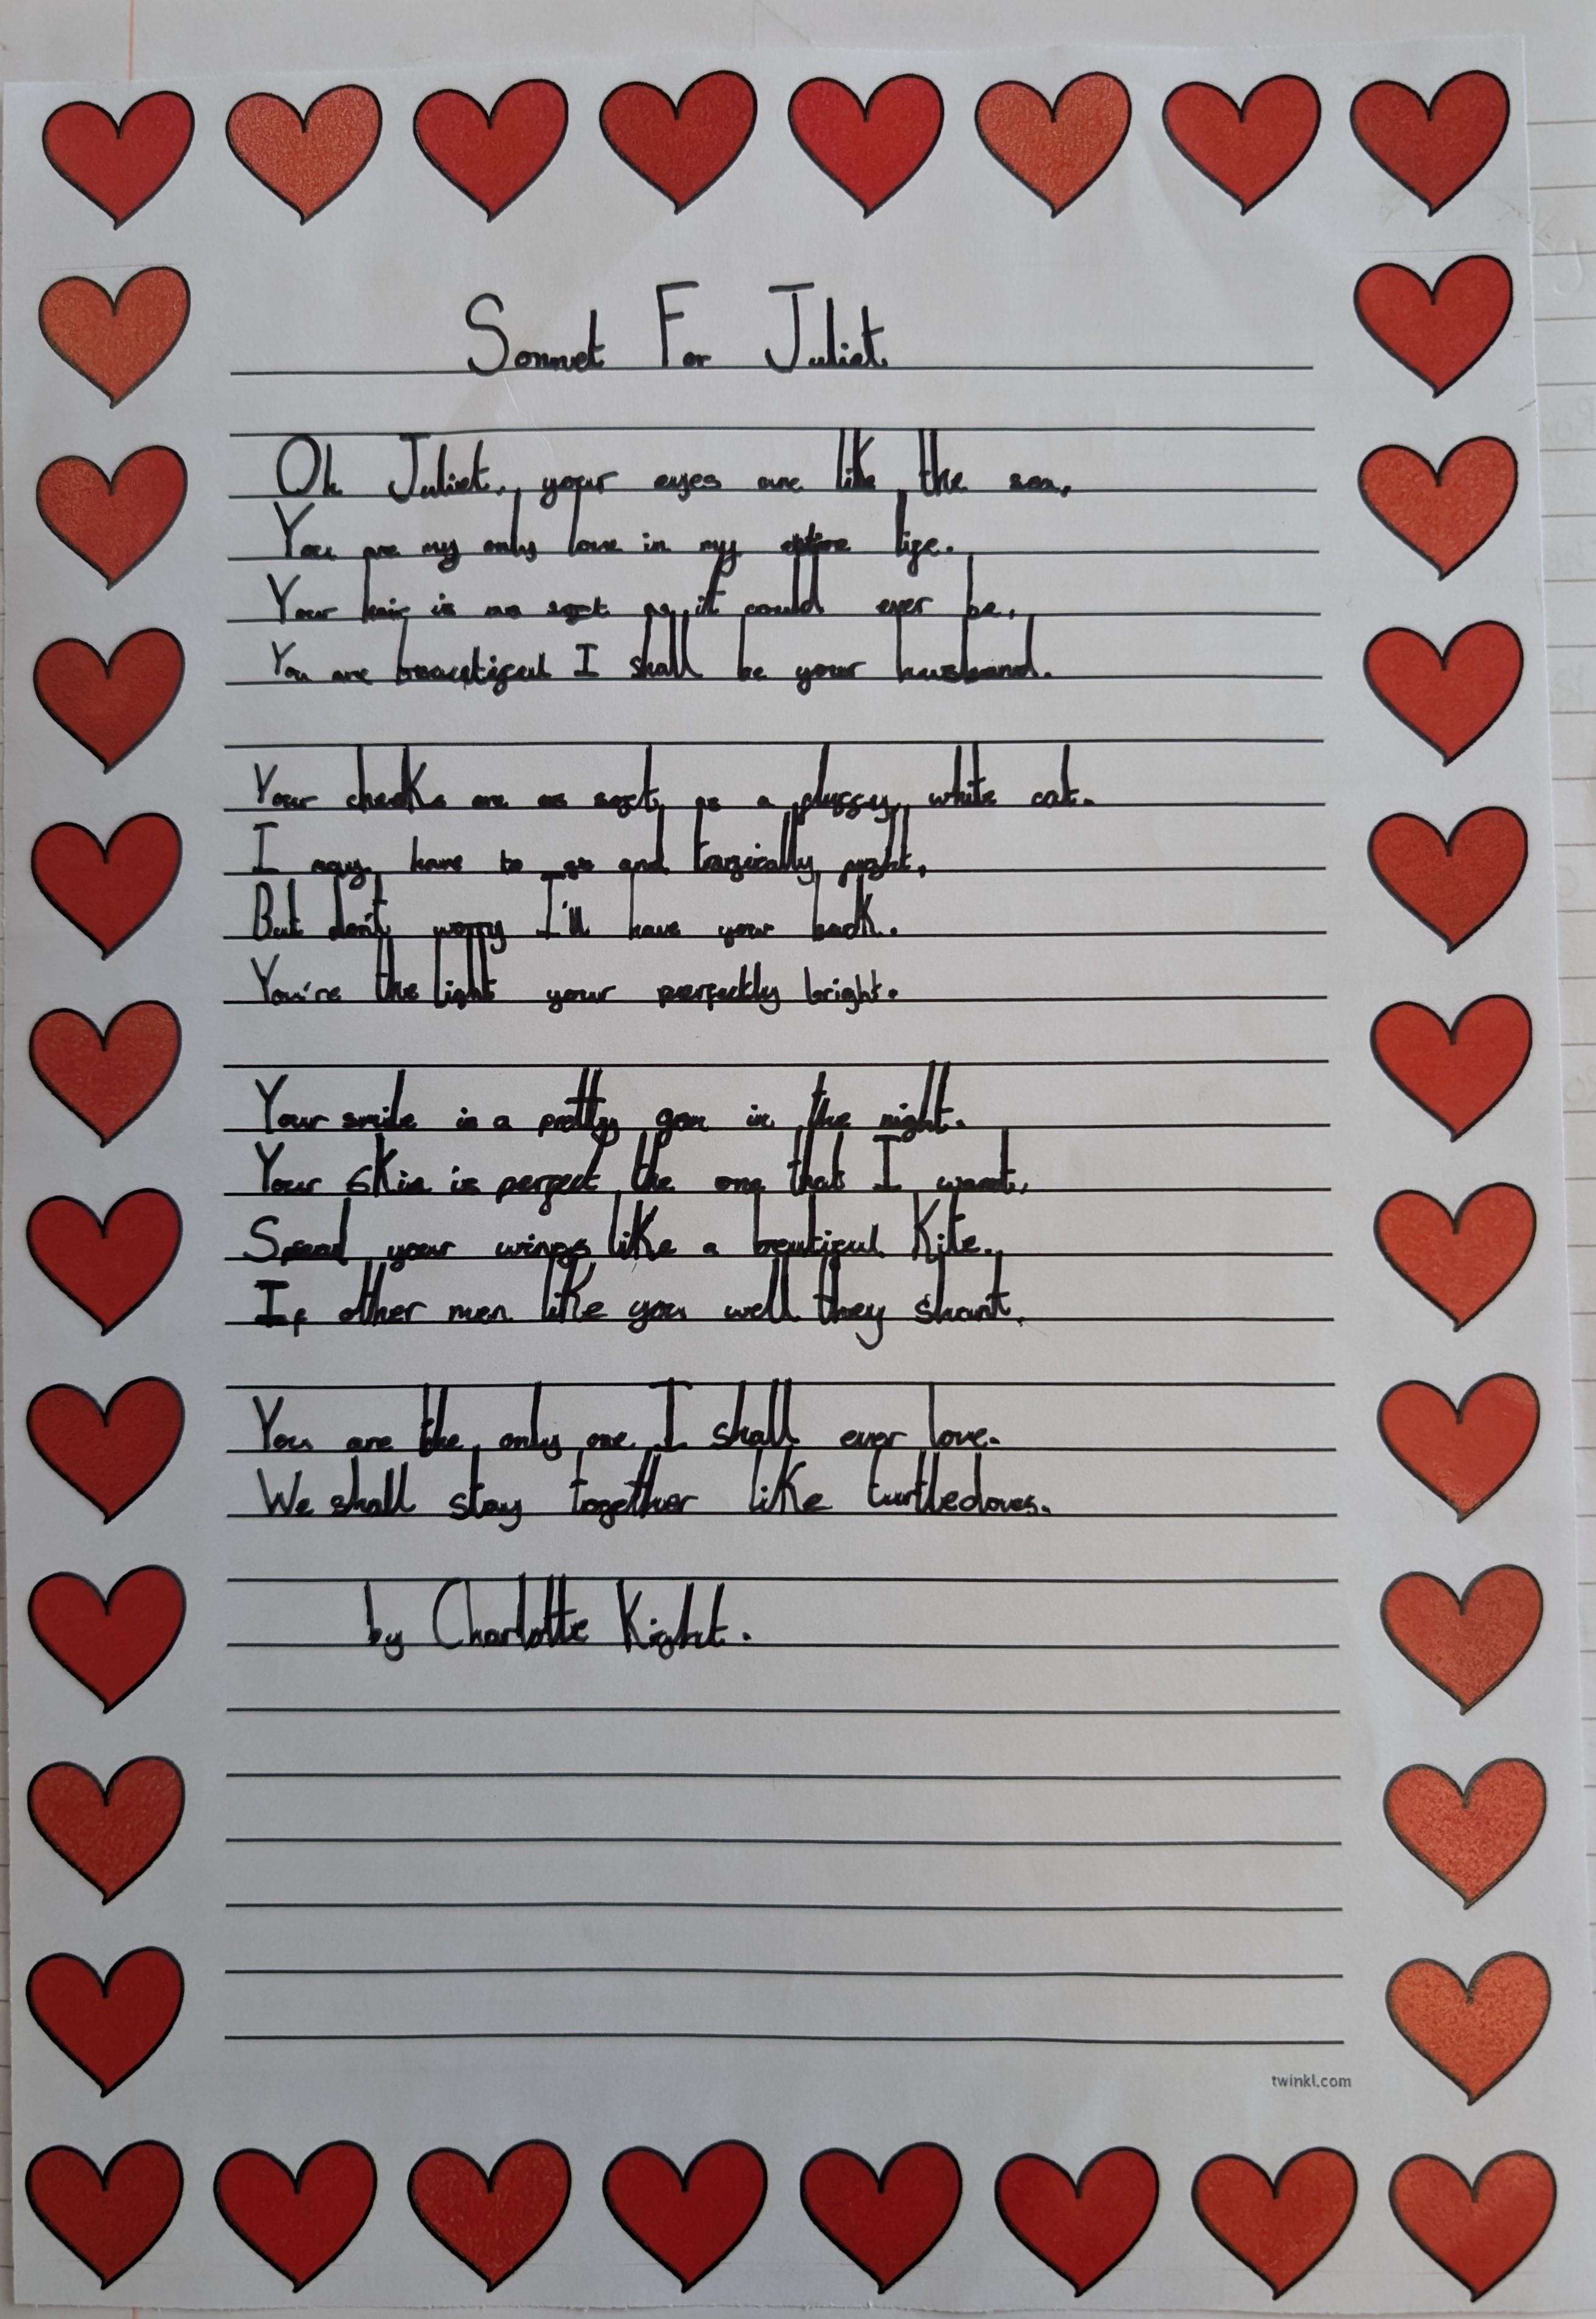 Sonnet For Juliet
Oh Juliet, your eyes are like the sea,
You are my only love in my entire life.
Your hair is as soft as it could ever be,
You are beautiful I shall be your husband.
Your cheeks are as soft as a fluffy white cat.
I may have to go and tragically fight,
But don't worry I'll have your back.
You're the light your perfectly bright.
Your smile is a pretty gem in the night.
Your skin is perfect the one that I want,
Spread your wings like a beutiful Kite.
If other men like you well they shant.
You are the only one I shall ever love.
We shall stay together like turtledoves.
by Charlotte Kight.
twinkl.com